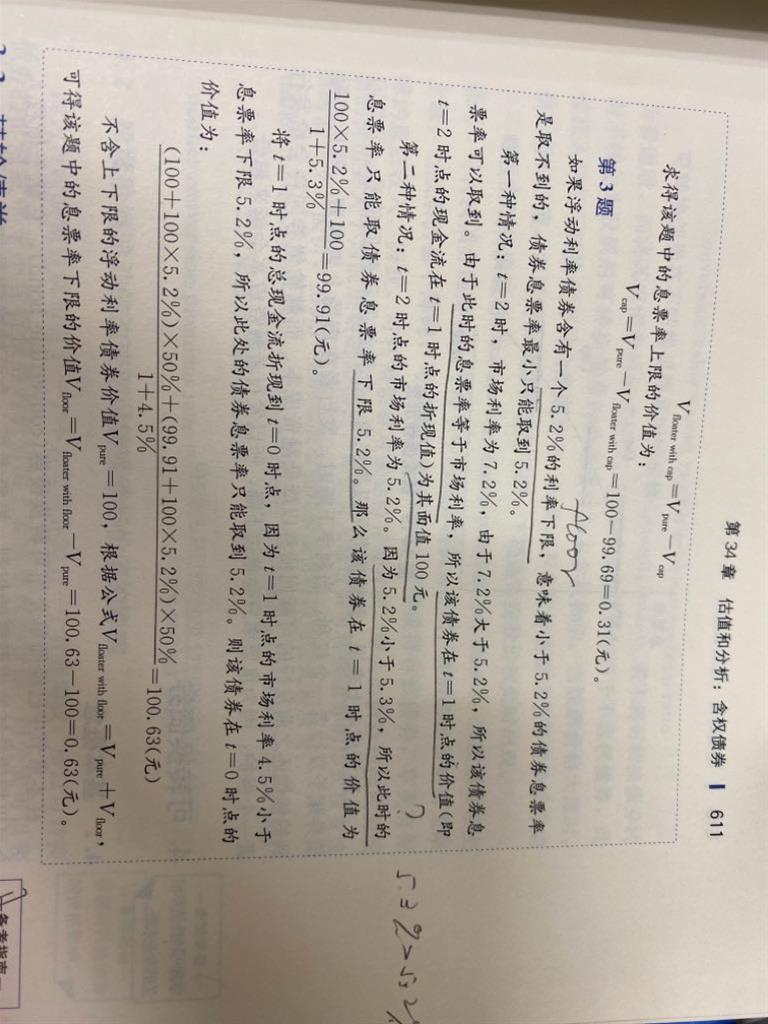 第34章 估值和分析：含权债券 611
V floater with cap = V pure − V cap
求得该题中的息票率上限的价值为：
V cap = V pure − V floater with cap = 100−99.69=0.31(元)。
第3题
floor
如果浮动利率债券含有一个5.2%的利率下限，意味着小于5.2%的债券息票率
是取不到的，债券息票率最小只能取到5.2%。
第一种情况：t=2时，市场利率为7.2%，由于7.2%大于5.2%，所以该债券息
票率可以取到。由于此时的息票率等于市场利率，所以该债券在t=1时点的价值(即
t=2时点的现金流在t=1时点的折现值)为其面值100元。
?
第二种情况：t=2时点的市场利率为5.2%。因为5.2%小于5.3%，所以此时的
息票率只能取债券息票率下限5.2%。那么该债券在t=1时点的价值为
100×5.2%+100
1+5.3%
=99.91(元)。
将t=1时点的总现金流折现到t=0时点，因为t=1时点的市场利率4.5%小于
息票率下限5.2%，所以此处的债券息票率只能取到5.2%。则该债券在t=0时点的
价值为：
(100+100×5.2%)×50%+(99.91+100×5.2%)×50%
1+4.5%
=100.63(元)
不含上下限的浮动利率债券价值V pure =100，根据公式V floater with floor = V pure + V floor，
可得该题中的息票率下限的价值V floor = V floater with floor − V pure =100.63−100=0.63(元)。
备考指南